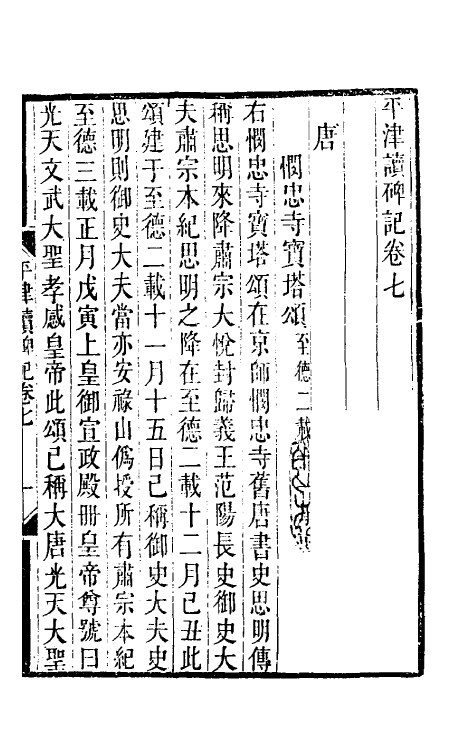 平津讀碑記卷七
唐
憫忠寺寶塔頌至德二載
右憫忠寺寶塔頌在京師憫忠寺舊唐書史思明傳
稱思明來降肅宗大悅封歸義王范陽長史御史大
夫肅宗本紀思明之降在至德二載十二月己丑此
頌建于至德二載十一月十五日已稱御史大夫史
思明則御史大夫當亦安祿山僞授所有肅宗本紀
至德三載正月戊寅上皇御宣政殿冊皇帝尊號曰
光天文武大聖孝感皇帝此頌已稱大唐光天大聖
平津讀碑記卷七
一